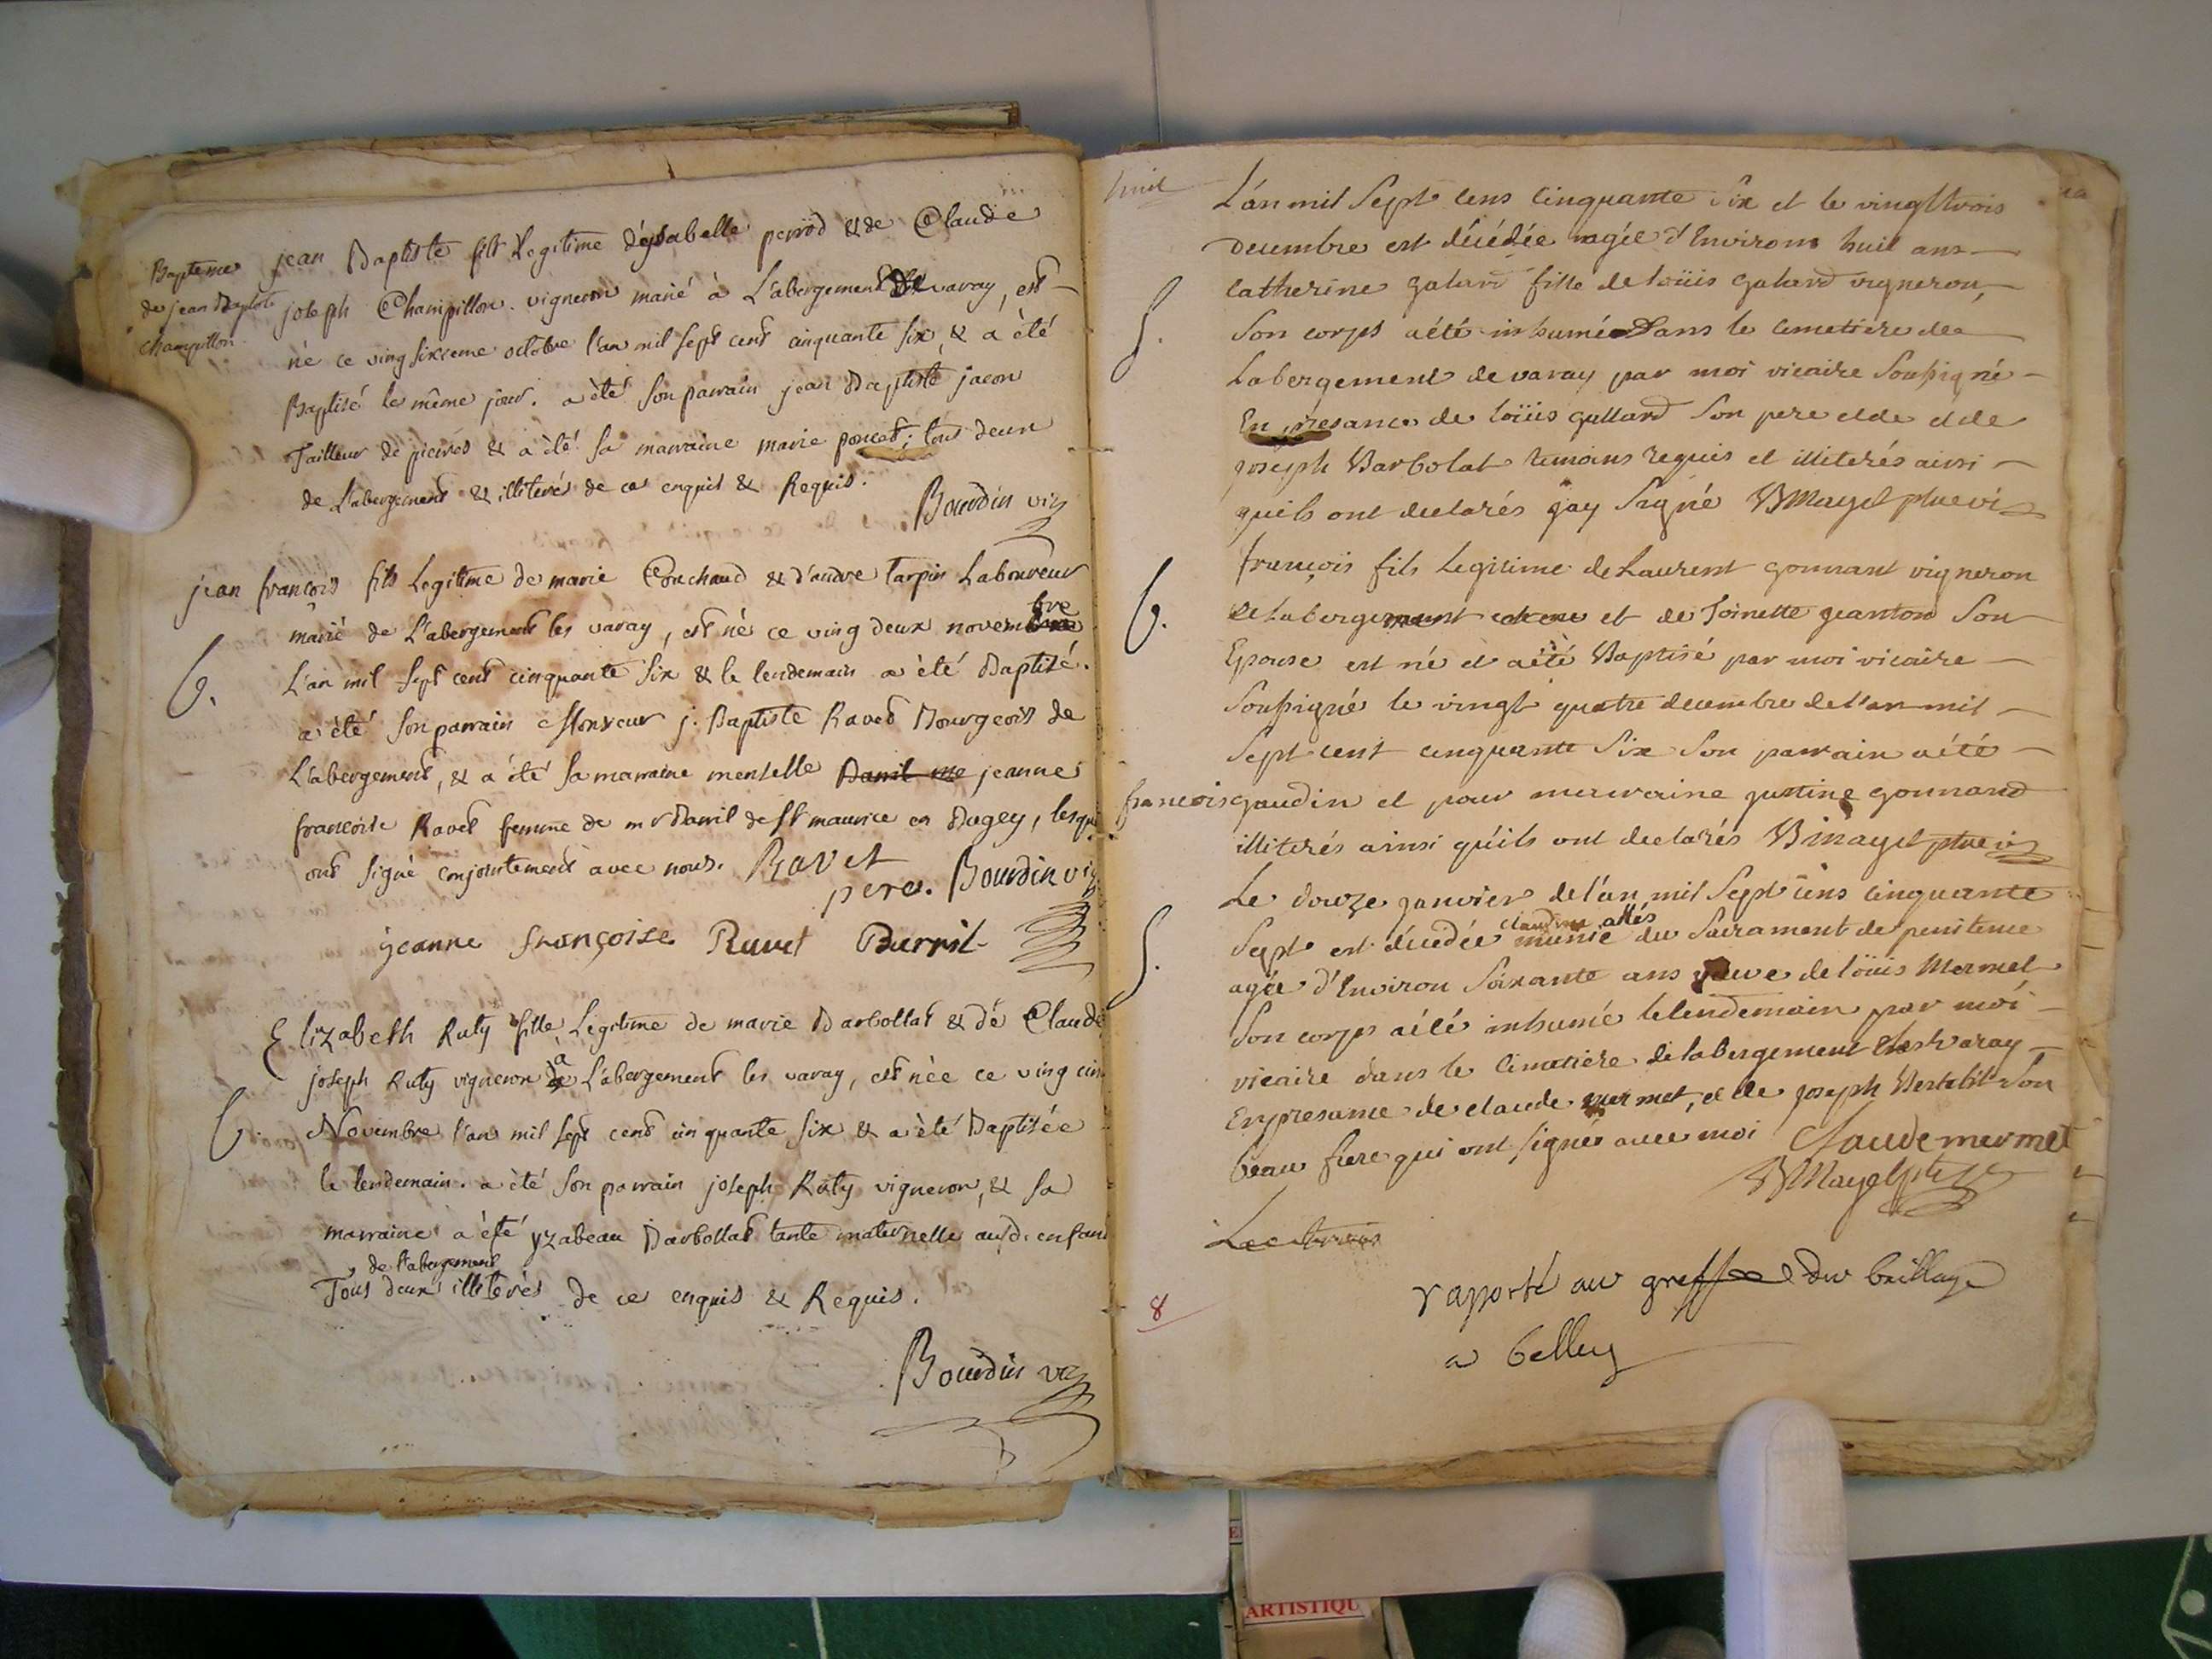 Bapteme
de jean Baptiste
Champillon
jean Baptiste fils Legitime d'ysabelle perrod & de Claude
joseph Champillon vigneron marié à L'abergement de varay, est
né ce ving sixieme octobre l'an mil sept cent cinquante six, & a èté
Baptisé le même jour. a èté son parrain jean Baptiste jacon
Tailleur de pierres & a èté sa marraine marie poncet; tous deux
de L'abergement & illiterés de ce enquis & Requis.
Bourdin vic
jean françois fils Legitime de marie Couchaud & d'andre tarpin Laboureur
marié de L'abergement les varay, est né ce ving deux novembre
b.
L'an mil sept cent cinquante six & le lendemain a èté Baptisé.
a été son parrain Monsieur j. Baptiste Ravet Bourgeois de
L'abergement, & a été sa marraine jeanne
francoise Ravet femme de mr Barril de St maurice en Bugey, lesqu
ont signé conjointement avec nous. Ravet
pere. Bourdin vic
jeanne françoise Ravet Barril
Elizabeth Ruty fille Legitime de marie Barbollat & dé Claude
joseph Ruty vigneron à L'abergement les varay, est née ce ving cin
b.
Novembre l'an mil sept cent cinquante six & a èté Baptisée
le lendemain. a èté son parrain joseph Ruty vigneron, & sa
marraine a èté yzabeau Barbollat tante maternelle aud. enfant
de l'abergement
Tous deux illiterés de ce enquis & Requis.
Bourdin vic
huit
L'an mil sept cens cinquante six et le vingttrois
decembre est décédée agée d'Environs huit ans
catherine galard fille de loüis galard vigneron,
s.
son corps a été inhumé Dans le cimetiere de
Labergement de varay par moi vicaire soussigné
En presance de loüis gallard son pere et de et de
joseph Barbolat temoins requis et illiterés ainsi
quils ont declarés jay signé Mayet
françois fils Legitime de Laurent gonnant vigneron
b.
de Labergement et de Toinette jeanton son
Epouse est né et a été Baptisé par moi vicaire
soussigné le vingt quatre decembre de l'an mil
sept cent cinquante six son parrain a été
francois gaudin et pour marraine justine gonnand
illiterés ainsi qu'ils ont declarés Mayet
Le douze janvier de l'an mil sept cens cinquante
claudine
s.
sept est décedée munie du sacrament de penitence
agée d'Environ soixante ans veuve de loüis Mermet
son corps a été inhumé le lendemain par moi
vicaire dans le cimetiere de labergement varay
En presance de claude mermet, et de joseph son
beau frere qui ont signés avec moi Claude mermet
Mayet
raporté au greffe du baillage
a belley
8
ARTISTIQU